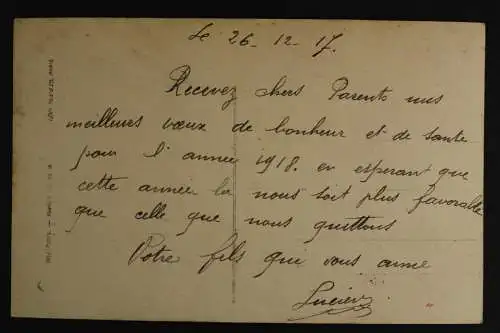 le 26-12-17.
Recevez chers Parents mes
meilleurs vœux de bonheur et de santé
pour l'année 1918. en esperant que
cette année la nous soit plus favorable
que celle que nous quittons
Votre fils qui vous aime
Lucien